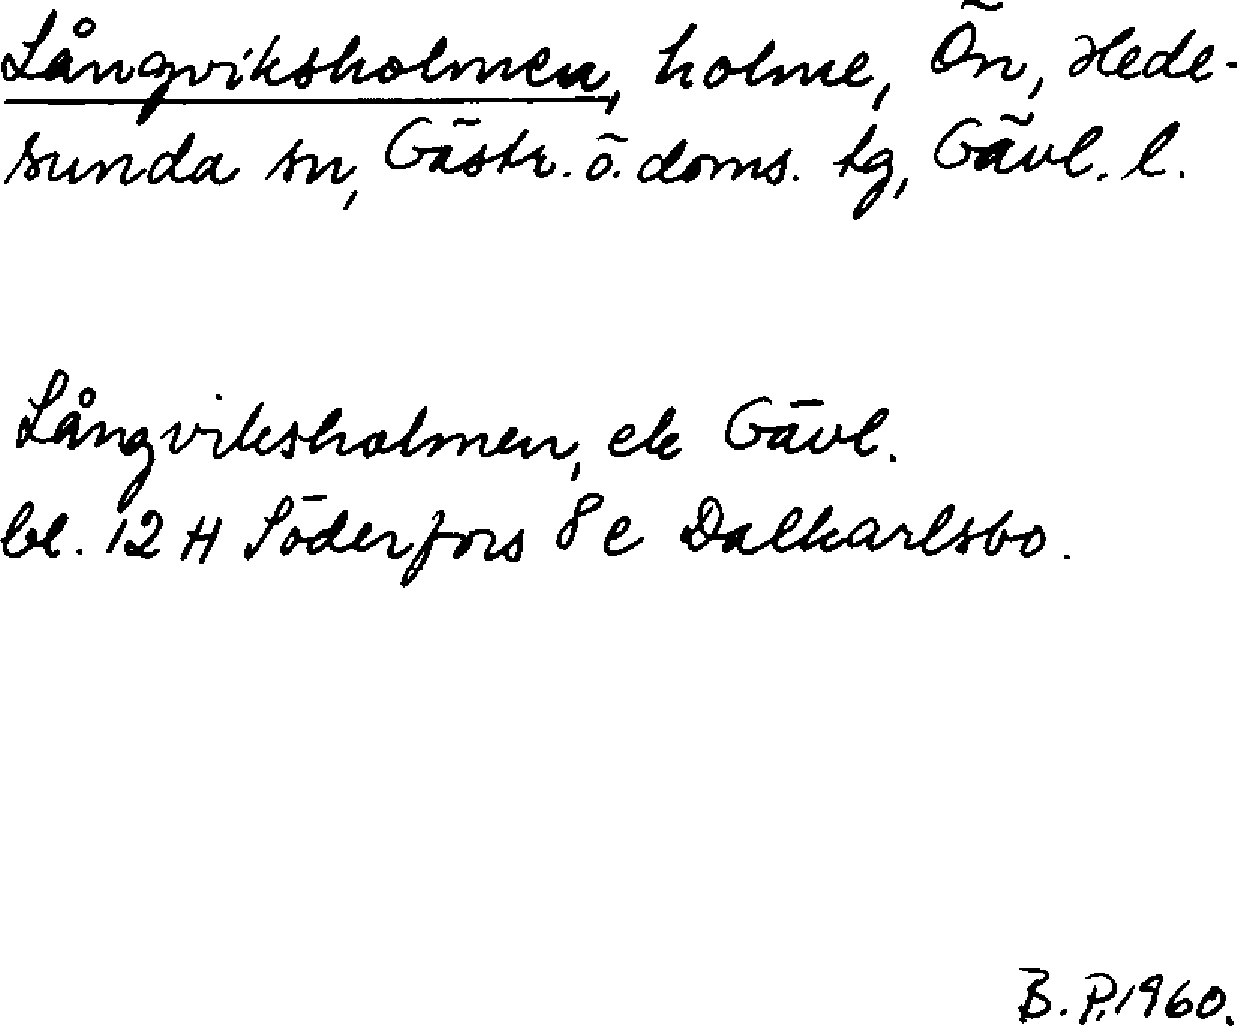 Långviksholmen, holme, Ön, Hede-
sunda sn, Gästr. ö. doms. tg, Gävl. l.
Långviksholmen, ek Gävl.
bl. 12 H Söderfors 8 c Dalkarlsbo.
B. P. 1960.